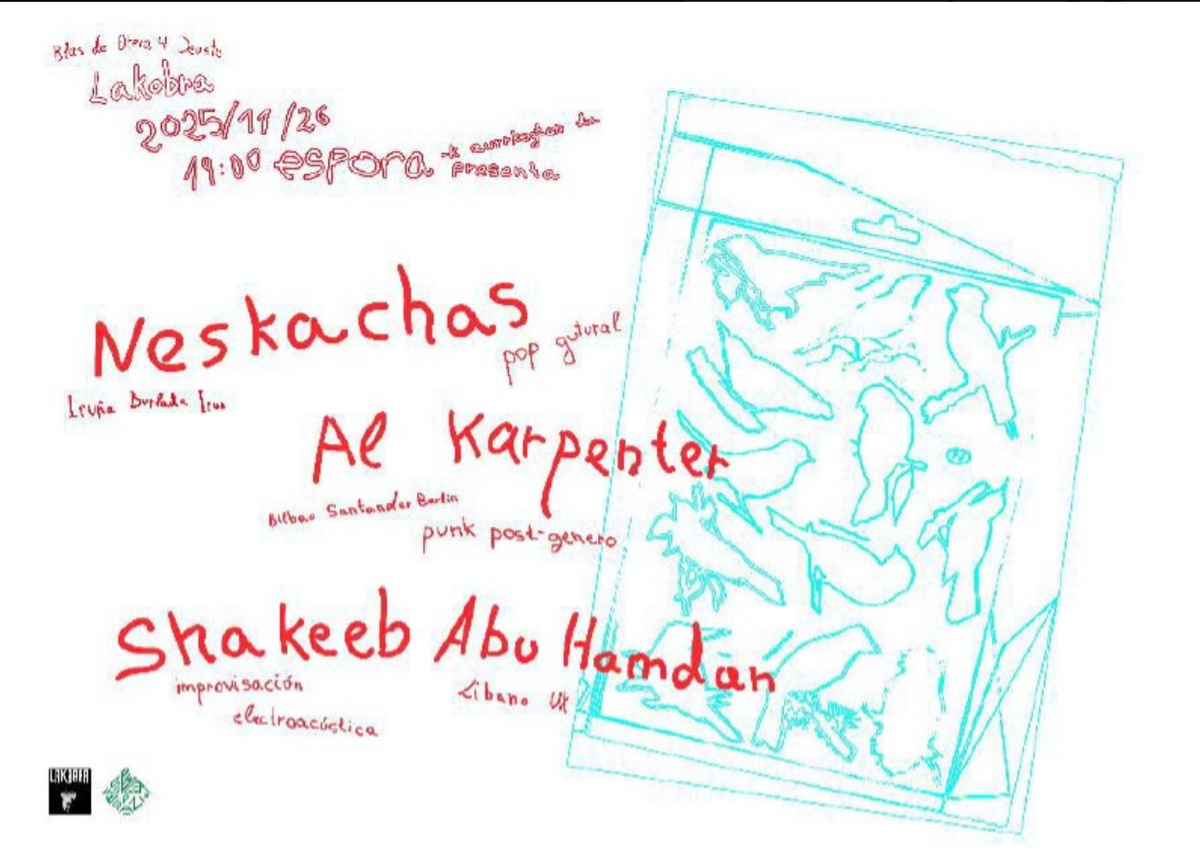 Blas de Otero 4 Deusto
Lakobra
2025/11/26
19:00 espora -k aurkezten du
presenta
Neskachas
pop gutural
Iruña Burlada Irun
Al Karpenter
Bilbao Santander Berlin
punk post-genero
Shakeeb Abu Hamdan
improvisación
electroacústica
Libano UK